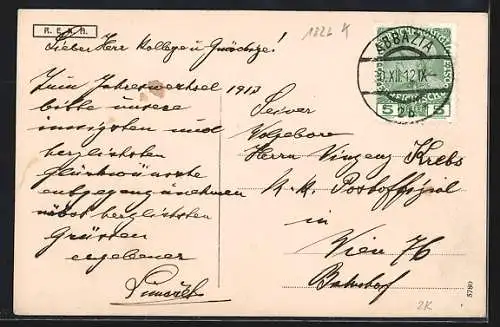 N.E.K.H.
1226
Lieber Herr Kollege u Gnädige!
Zum Jahreswechsel 1913
bitte unsere
innigsten und
herzlichsten
Glückwünsche
entgegenzunehmen
nebst herzlichsten
Grüssen
ergebener
ABBAZIA
XII 12 IX
2b
5 5
Seiner
Wolgeboren
Herrn Vinzenz Krebs
K.K. Postoffizial
in
Wien 76
Bahnhof
5780
2K